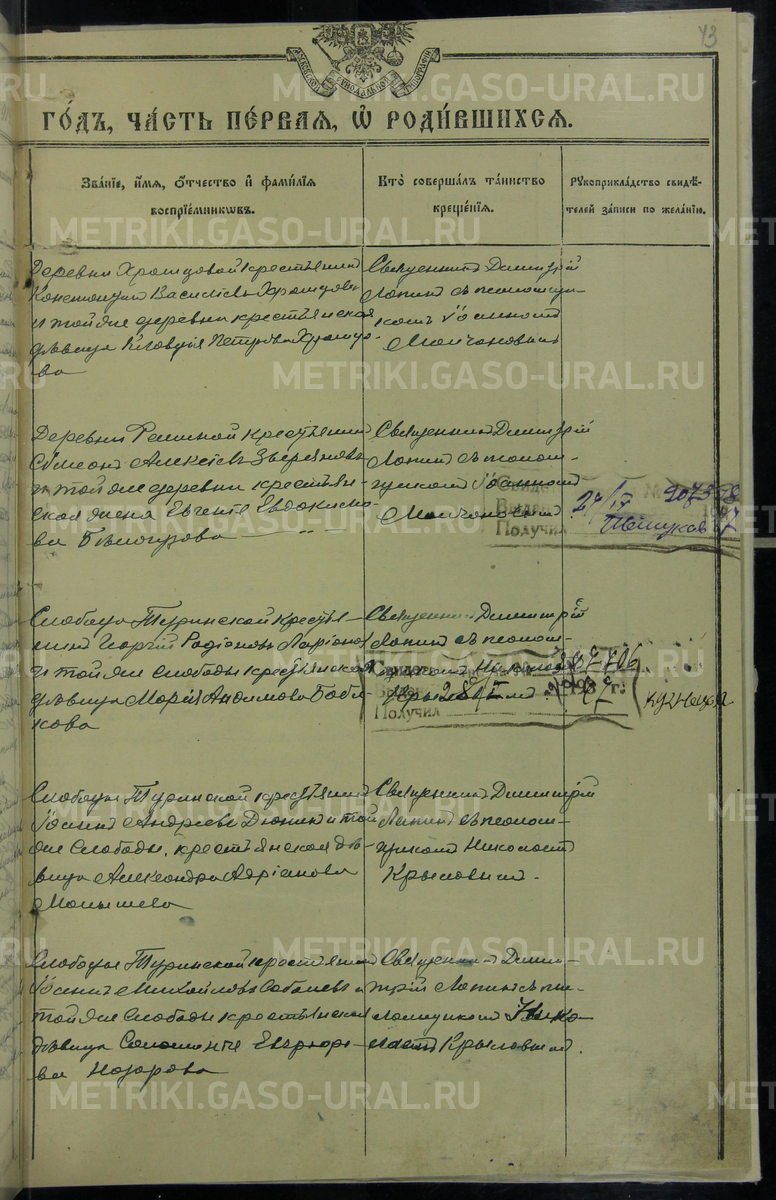 43
МОСКОВСКОЙ СѴНОДАЛЬНОЙ ТИПОГРАФІИ
METRIKI.GASO-URAL.RU
ГО́ДЪ, ЧА́СТЬ ПЕ́РВАЯ, Ѡ҆ РОДИ́ВШИХСЯ.
Зва́нїе, и҆́мя, ѻ҆́тчество и҆ фами́лїя
воспрїе́мникѡвъ.
Кто̀ соверша́лъ та́инство
креще́нїя.
Рукоприкла́дство свидѣ́-
телей за́писи по жела́нїю.
Деревни Храмцовой крестьянин
Константин Васильевъ Храмцовъ
и той же деревни крестьянская
дѣвица Клавдія Петрова Храмцо-
ва
Священникъ Димитрій
Лапинъ съ псаломщи-
комъ Іоанномъ
Молчановымъ
Деревни крестьянинъ
Сѵмеонъ Алексѣевъ Звѣряновъ
и той же деревни крестьян-
ская жена Евгенія Евдокимо-
ва Бѣлоглазова
Священникъ Димитрій
Лапинъ съ псалом-
щикомъ Іоанномъ
Молчановымъ
Получил
Слобода Туринской крестья-
нинъ Георгій Родіоновъ Ларіоновъ
и той же слободы крестьянская
дѣвица Марія Анѳимова Бабы-
кова
Священникъ Димитрій
Лапинъ съ псалом-
Получил
Кузнецов
Слободы Туринской крестьянинъ
Іоаннъ Андреевъ Дюкин и той
же слободы, крестьянская дѣ-
вица Александра Адріанова
Малышева
Священникъ Димитрій
Лапинъ съ псалом-
щикомъ Николаемъ
Крыловымъ.
Слободы Туринской крестьянин
Іоаннъ Михайловъ Соболевъ и
той же слободы крестьянская
дѣвица
ва Назарова
Священникъ Дими-
трій Лапинъ съ пса-
ломщикомъ Нико-
лаемъ Крыловымъ.